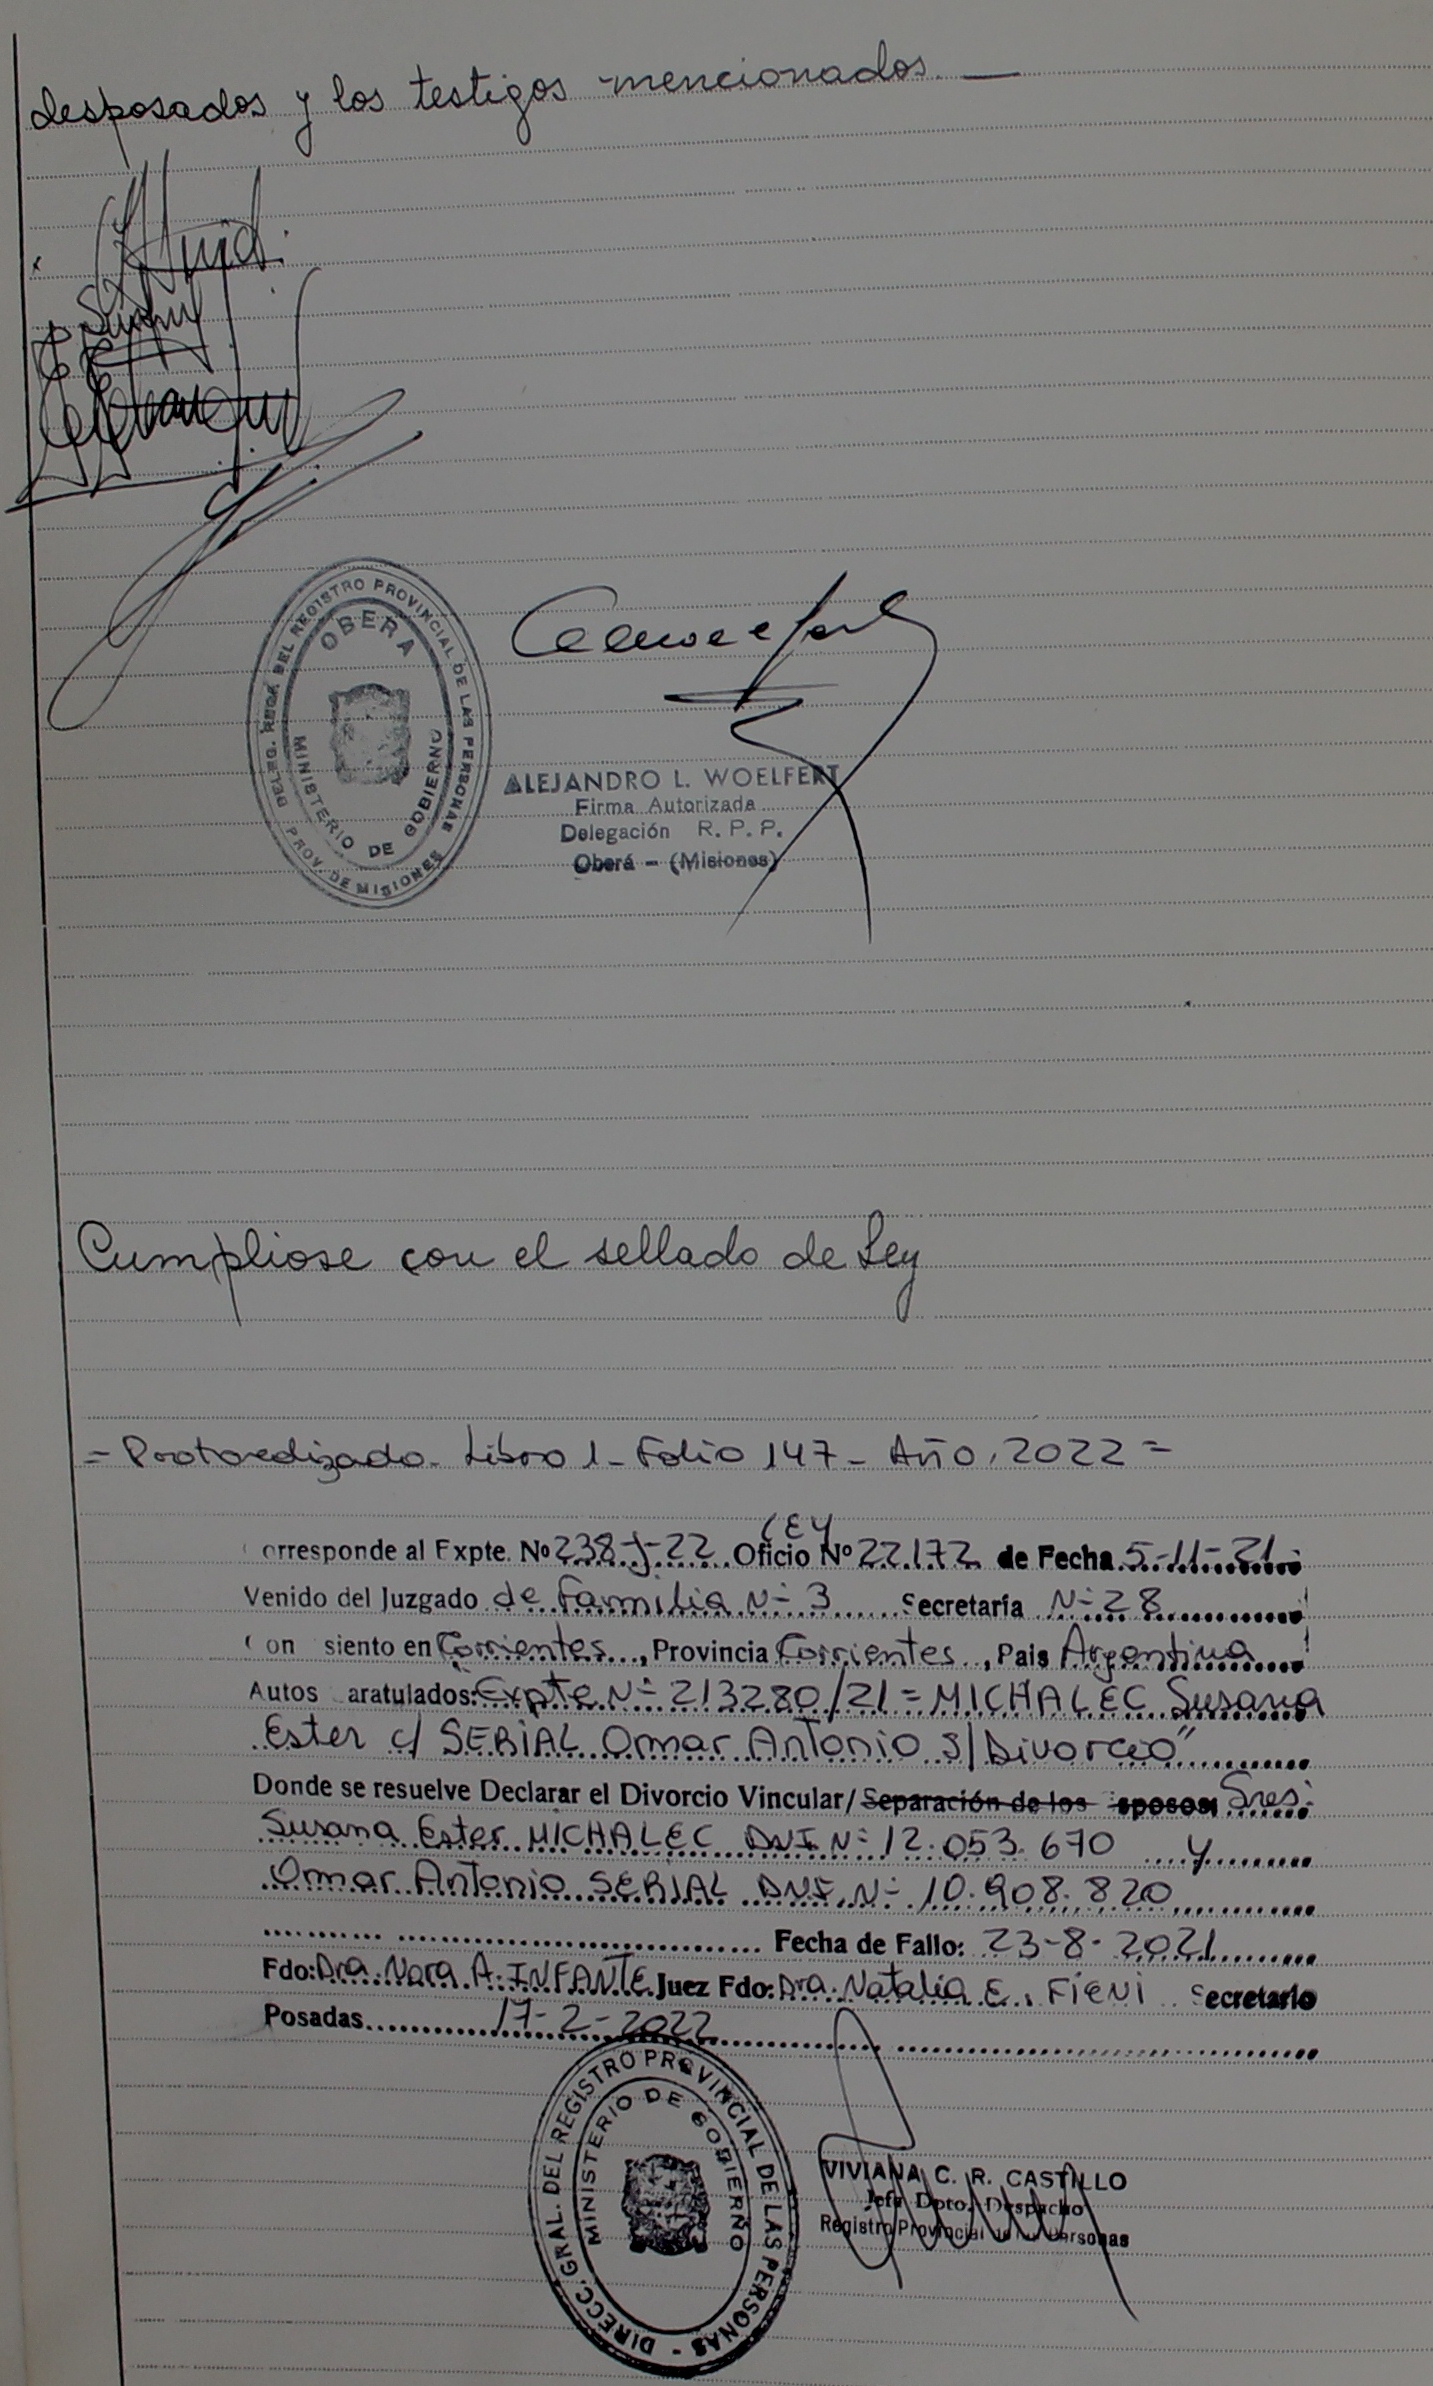 desposados y los testigos mencionados. —
DELEG. REGA DEL REGISTRO PROVINCIAL DE LAS PERSONAS
PROV. DE MISIONES
OBERA
MINISTERIO DE GOBIERNO
ALEJANDRO L. WOELFERT
Firma Autorizada
Delegación R. P. P.
Oberá - (Misiones)
Cumpliose con el sellado de Ley
= Protocolizado - Libro 1 - Folio 147 - Año 2022 =
LEY
orresponde al Expte. Nº 238-J-22 Oficio Nº 22.172 de Fecha 5-11-21
Venido del Juzgado de Familia Nº 3 Secretaría Nº 28
on siento en Corrientes, Provincia Corrientes, Pais Argentina
Autos aratulados: Expte Nº 213280/21 = MICHALEC Susana
Ester c/ SERIAL Omar Antonio s/Divorcio"
Donde se resuelve Declarar el Divorcio Vincular/ Separación de los sposos Sres.
Susana Ester MICHALEC DNI Nº 12.053.670 y
Omar Antonio SERIAL DNI Nº 10.908.820
Fecha de Fallo: 23-8-2021
Fdo: Dra. Nora A. INFANTE Juez Fdo: Dra. Natalia E. Fieni Secretario
Posadas 17-2-2022
DIRECC. GRAL. DEL REGISTRO PROVINCIAL DE LAS PERSONAS -
MINISTERIO DE GOBIERNO
VIVIANA C. R. CASTILLO
Jefa Dpto. Despacho
Registro Provincial de las Personas